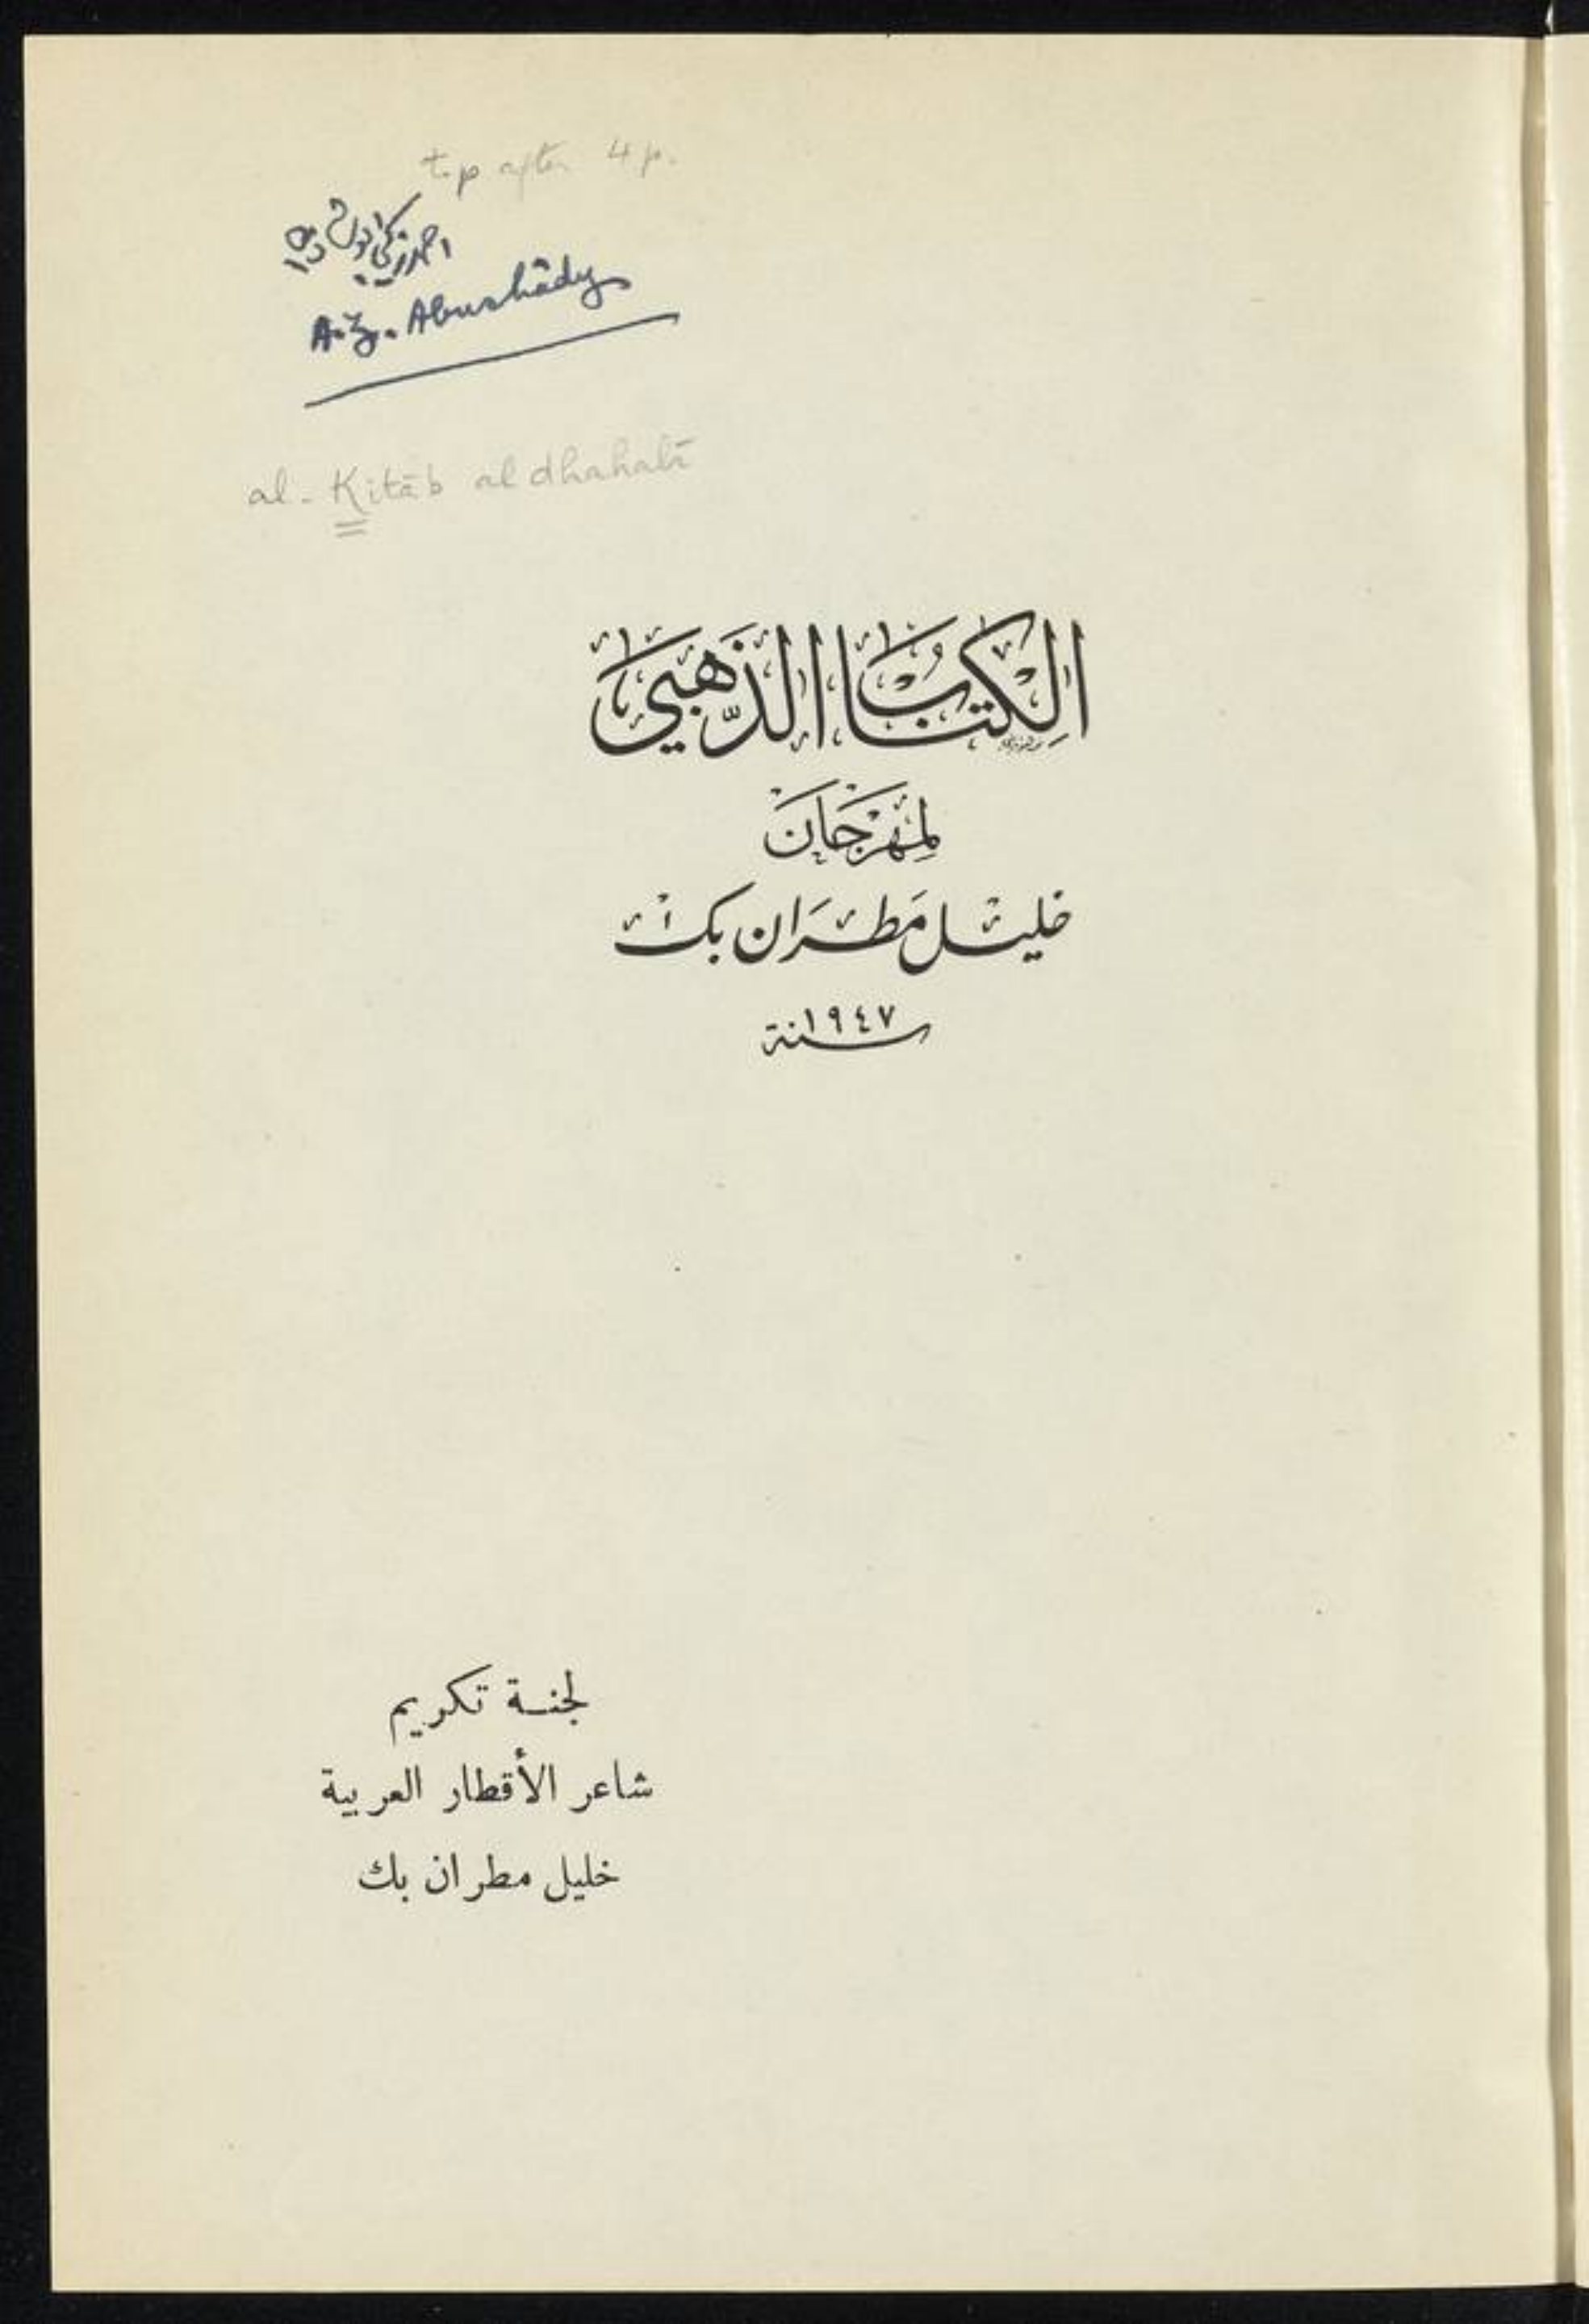 t.p after 4 p.
احمد زكي ابو شادي
A.Z. Abushâdy
al-Kitāb al dhahabī
الكتاب الذهبي
لمهرجان
خليل مطران بك
سنة ١٩٤٧
لجنة تكريم
شاعر الأقطار العربية
خليل مطران بك